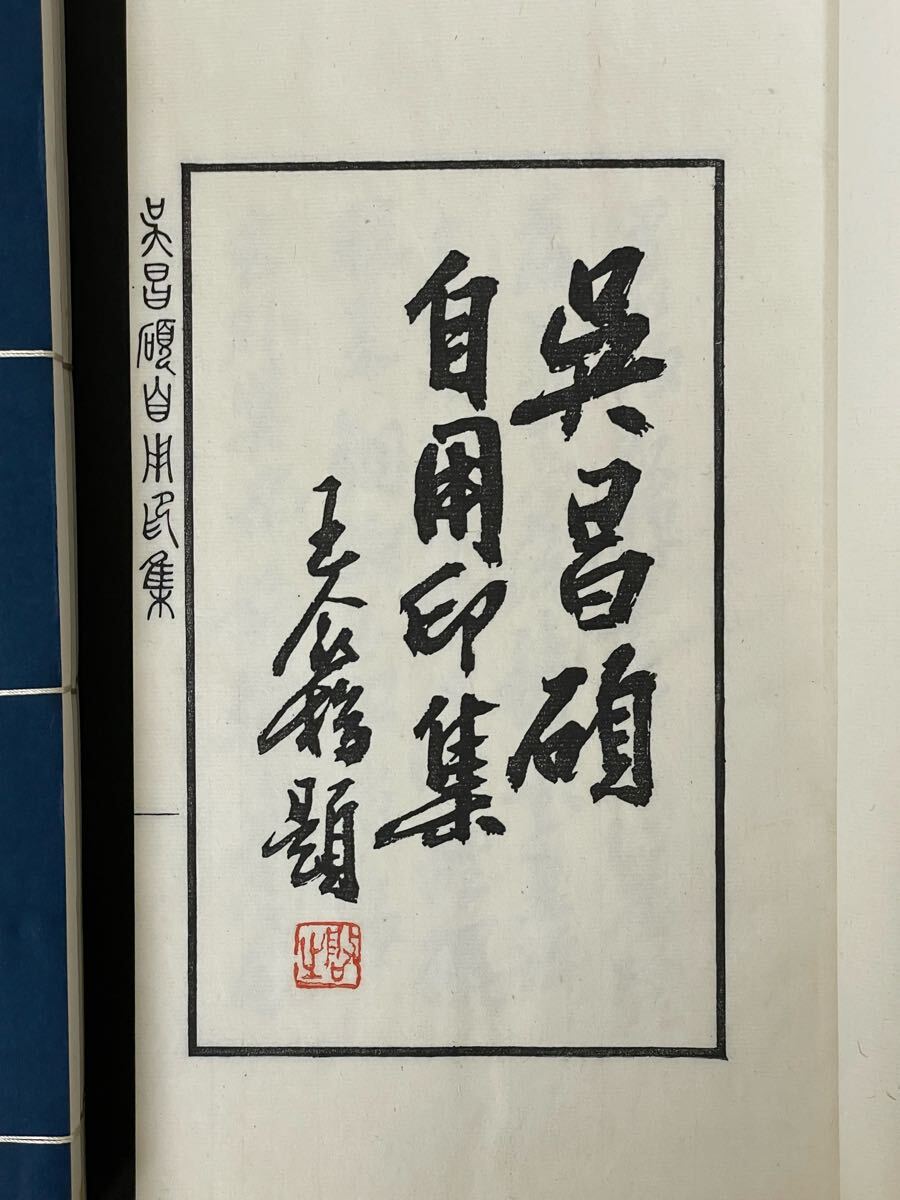 吳昌碩
自用印集
王个簃題
吳昌碩自用印集